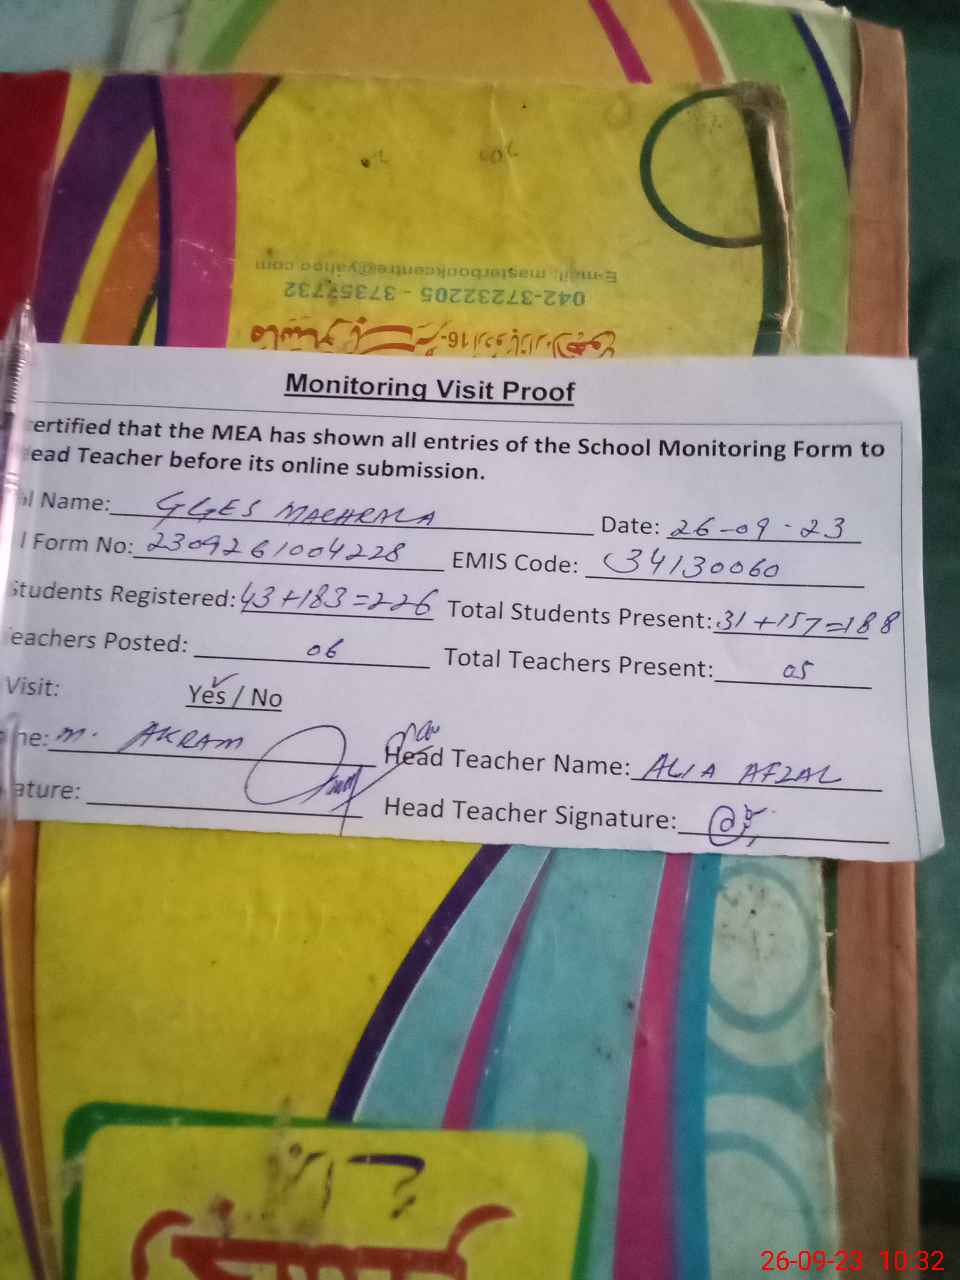 E-mail: masterbookcentre@yahoo.com
042-37232205 - 37357732
Monitoring Visit Proof
certified that the MEA has shown all entries of the School Monitoring Form to
Head Teacher before its online submission.
ol Name: GGES MACHRALA Date: 26-09-23
l Form No: 2309261004228 EMIS Code: 34130060
Students Registered: 43+183=226 Total Students Present: 31+157=188
Teachers Posted: 06 Total Teachers Present: 05
Visit: Yes / No
me: M. AKRAM Head Teacher Name: ALIA AFZAL
ature: Head Teacher Signature:
26-09-23 10:32